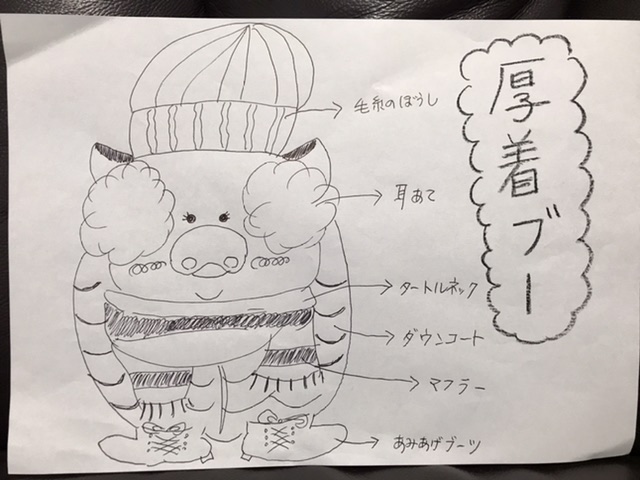 厚着ブー
毛糸のぼうし
耳あて
タートルネック
ダウンコート
マフラー
あみあげブーツ